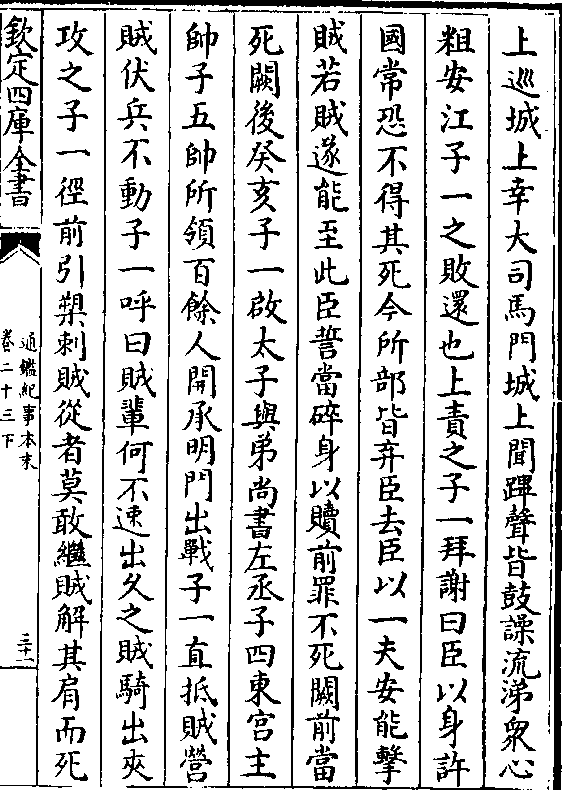 上巡城上幸大司馬門城上聞蹕聲皆鼓譟流涕衆心
粗安江子一之敗還也上責之子一拜謝曰臣以身許
國常恐不得其死今所部皆弃臣去臣以一夫安能擊
賊若賊遂能至此臣誓當碎身以贖前罪不死闕前當
死闕後癸亥子一啟太子與弟尚書左丞子四東宮主
帥子五帥所領百餘人開承明門出戰子一直抵賊營
賊伏兵不動子一呼曰賊輩何不速出久之賊騎出夾
攻之子一徑前引槊刺賊從者莫敢繼賊解其肩而死
欽定四庫全書
通鑑紀事本末
卷二十三下
三十二